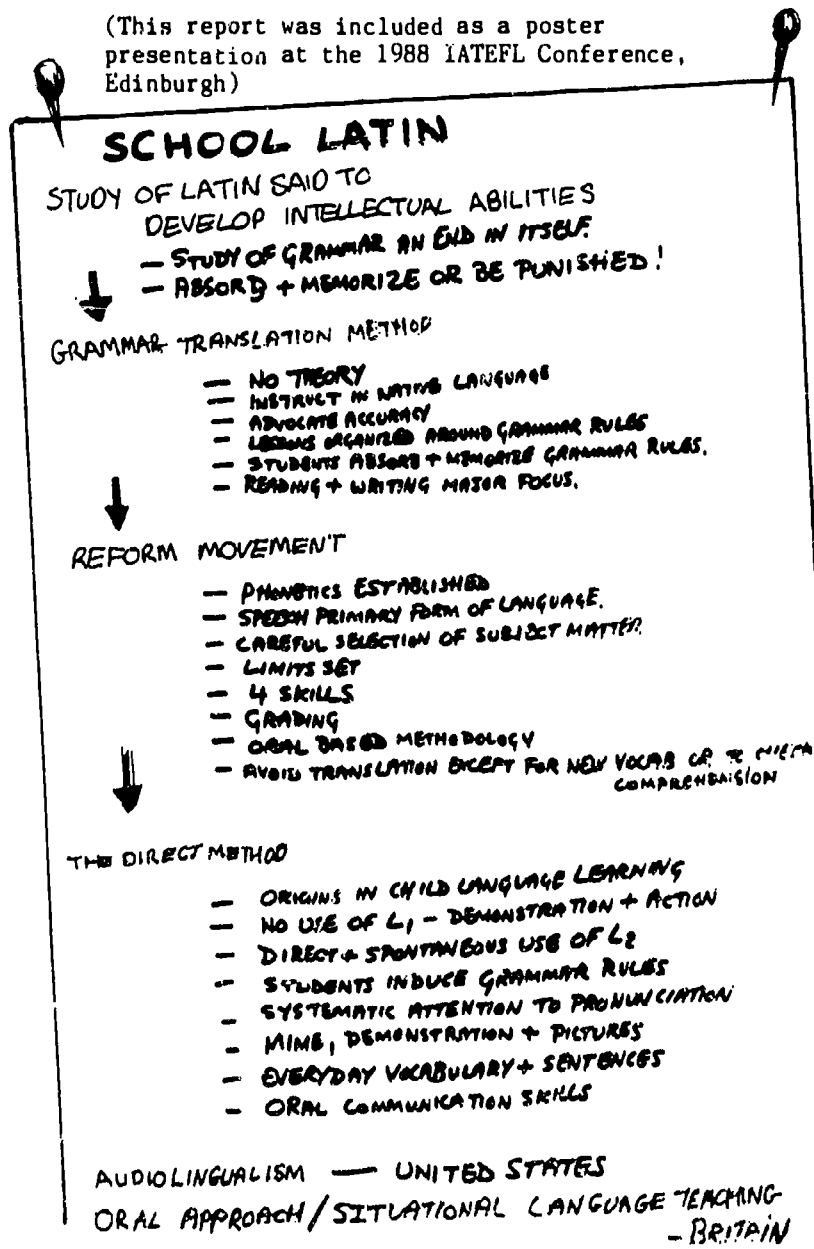 (This report was included as a poster
presentation at the 1988 IATEFL Conference,
Edinburgh)
SCHOOL LATIN
STUDY OF LATIN SAID TO
DEVELOP INTELLECTUAL ABILITIES
— STUDY OF GRAMMAR AN END IN ITSELF.
— ABSORB + MEMORIZE OR BE PUNISHED!
GRAMMAR TRANSLATION METHOD
— NO THEORY
— INSTRUCT IN NATIVE LANGUAGE
— ADVOCATE ACCURACY
— LESSONS ORGANIZED AROUND GRAMMAR RULES
— STUDENTS ABSORB + MEMORIZE GRAMMAR RULES.
— READING + WRITING MAJOR FOCUS.
REFORM MOVEMENT
— PHONETICS ESTABLISHED
— SPEECH PRIMARY FORM OF LANGUAGE.
— CAREFUL SELECTION OF SUBJECT MATTER
— LIMITS SET
— 4 SKILLS
— GRADING
— ORAL BASED METHODOLOGY
— AVOID TRANSLATION EXCEPT FOR NEW VOCAB OR
COMPREHENSION
THE DIRECT METHOD
— ORIGINS IN CHILD LANGUAGE LEARNING
— NO USE OF L1 – DEMONSTRATION + ACTION
— DIRECT + SPONTANEOUS USE OF L2
— STUDENTS INDUCE GRAMMAR RULES
— SYSTEMATIC ATTENTION TO PRONUNCIATION
— MIME, DEMONSTRATION + PICTURES
— EVERYDAY VOCABULARY + SENTENCES
— ORAL COMMUNICATION SKILLS
AUDIOLINGUALISM — UNITED STATES
ORAL APPROACH/SITUATIONAL LANGUAGE TEACHING
– BRITAIN